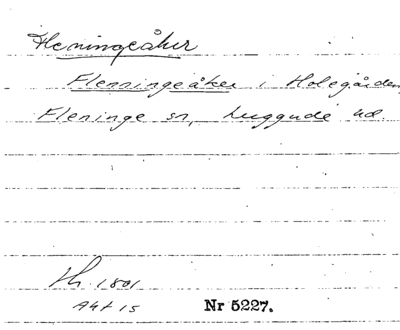 Fleningeåker
Flenningeåker i Holegården,
Fleninge sn, Luggude hd.
Th. 1801
Akt 15 Nr 5227.